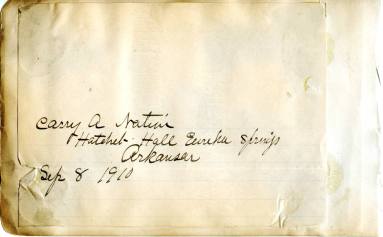 Carry A Nation
Hatchet Hall Eureka Springs
Arkansas
Sep 8 1910